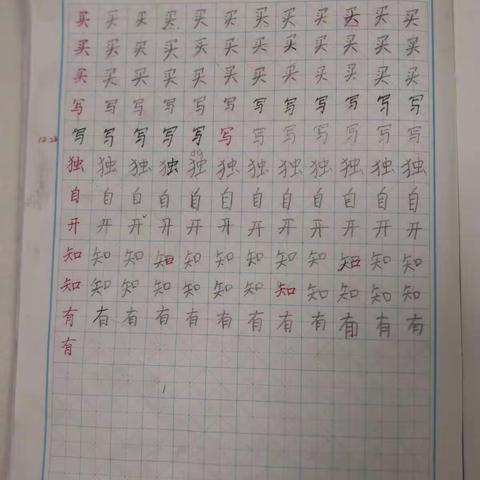 买买买买买买买买买买买买
买买买买买买买买买买买买
买买买买买买买买买买买买
写写写写写写写写写写写写
12.28 写写写写写写写写写写写写
独独独独独独独独独独独独
自自自自自自自自自自自自
开开开开开开开开开开开开
知知知知知知知知知知知知
知知知知知知知知知知知知
有有有有有有有有有有有有
有